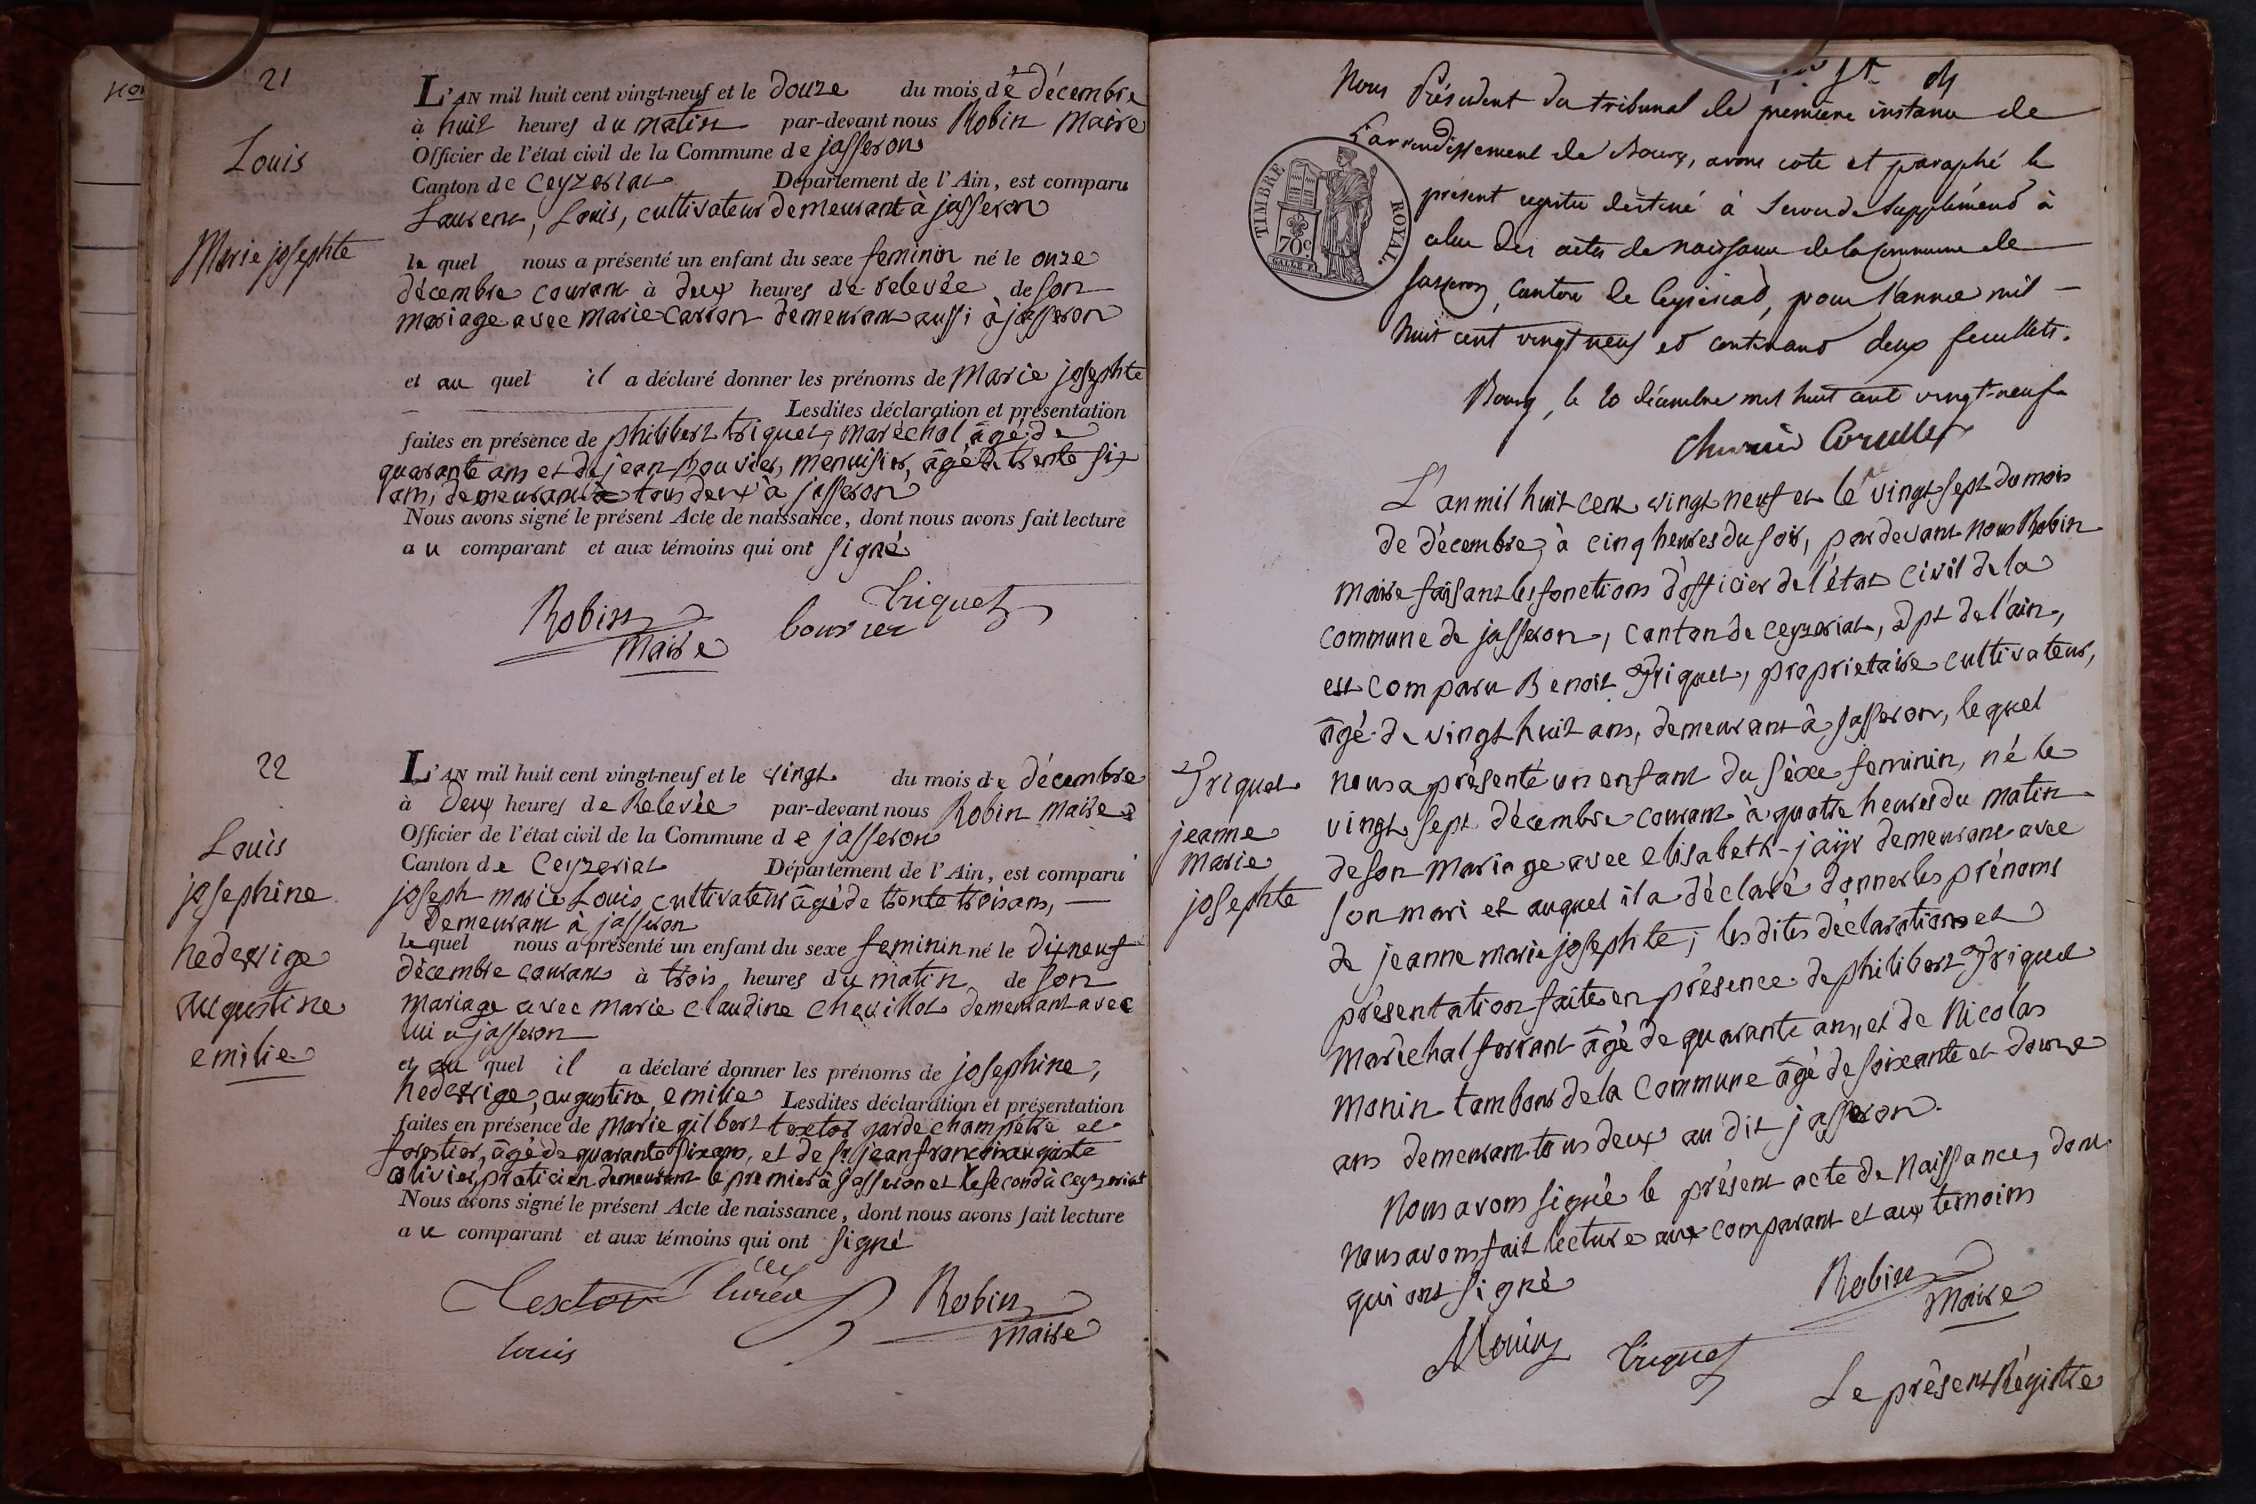 21
Louis
Marie josephte
L'AN mil huit cent vingt-neuf et le douze du mois de décembre
à huit heures du matin par-devant nous Robin Maire
Officier de l'état civil de la Commune de jasseron
Canton de Ceyzeriat Département de l'Ain, est comparu
Laurent, Louis, cultivateur demeurant à jasseron
le quel nous a présenté un enfant du sexe feminin né le onze
décembre courant à deux heures de relevée de son
mariage avec Marie Carron demeurant aussi à jasseron
et au quel il a déclaré donner les prénoms de Marie josephte
Lesdites déclaration et présentation
faites en présence de philibert triquet, maréchal âgé de
quarante ans et de jean bouvier, menuisier, âgé de trente six
ans, demeurant tous deux à jasseron
Nous avons signé le présent Acte de naissance, dont nous avons fait lecture
au comparant et aux témoins qui ont signé
Robin
Maire
bouvier
Triquet
22
Louis
josephine
hedewige
augustine
emilie
L'AN mil huit cent vingt-neuf et le vingt du mois de décembre
à deux heures de Relevée par-devant nous Robin Maire
Officier de l'état civil de la Commune de jasseron
Canton de Ceyzeriat Département de l'Ain, est comparu
joseph marie Louis, cultivateur âgé de trente trois ans,
demeurant à jasseron
le quel nous a présenté un enfant du sexe feminin né le dixneuf
décembre courant à trois heures du matin de son
mariage avec marie claudine chevillot demeurant avec
lui a jasseron
et au quel il a déclaré donner les prénoms de josephine,
hedewige, augustine emilie Lesdites déclaration et présentation
faites en présence de Marie gilbert textor garde champêtre et
forestier, âgé de quarante six ans, et de sr jean francois auguste
olivier, praticien demeurant le premier à jasseron et le second à Ceyzeriat
Nous avons signé le présent Acte de naissance, dont nous avons fait lecture
au comparant et aux témoins qui ont signé
Textor
Robin
Maire
Louis
Nous Président du tribunal de première instance de
l'arrondissement de Bourg, avons coté et paraphé le
présent registre destiné à servir de supplément à
celui des actes de naissance de la Commune de
Jasseron, Canton de Ceyzériat, pour l'année mil
huit cent vingt neuf et contenant deux feuillets.
Bourg, le 20 décembre mil huit cent vingt-neuf
TIMBRE ROYAL.
70c
GALLE F.
L'an mil huit cent vingt neuf et le vingt sept du mois
de décembre, à cinq heures du soir, pardevant nous Robin
Maire faisant les fonctions d'officier de l'état civil de la
commune de jasseron, canton de Ceyzeriat, dpt de l'ain,
est comparu Benoit Triquet, proprietaire cultivateur,
âgé de vingt huit ans, demeurant à Jasseron, le quel
nous a présenté un enfant du sèxe feminin, né le
vingt sept décembre courant à quatre heures du matin
de son mariage avec elisabeth jayr demeurant avec
son mari et auquel il a déclaré donner les prénoms
de jeanne marie josephte; les dites déclaration et
présentation faites en présence de philibert Triquet
Maréchal ferrant âgé de quarante ans, et de Nicolas
Monin tambour de la commune âgé de soixante et douze
ans demeurant tous deux au dit jasseron.
Nous avons signé le présent acte de Naissance, dont
nous avons fait lecture aux comparant et aux temoins
qui ont signé
Triquet
jeanne
marie
josephte
Robin
Maire
Monin
Triquet
Le présent Régistre